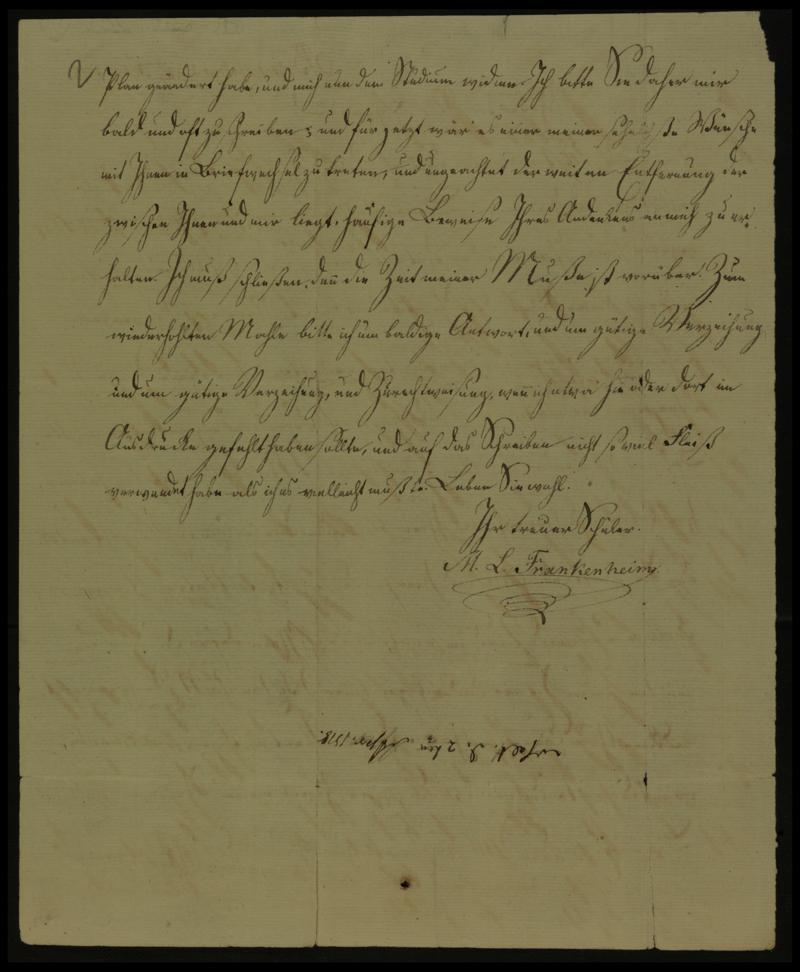 Plan geändert habe, und mich nun dem Studium widme. Ich bitte Sie daher mir
bald und oft zu schreiben; und für jetzt wär es einer meiner sehnlichste Wünsche
mit Ihnen in Briefwechsel zu treten, und ungeachtet der weiten Entfernung der
zwischen Ihnen und mir liegt, häufige Beweise Ihres Andenkens an mich zu er-
halten. Ich muß schließen, denn die Zeit meiner Muße ist vorüber. Zum
wiederhohlten Mahle bitte ich um baldige Antwort, und um gütige Verzeihung
und um gütige Verzeihung, und Zurechtweisung, wenn ich etwa hie oder dort im
Ausdrucke gefehlt haben sollte, und auf das Schreiben nicht so viel Fleiß
verwendet habe als ich es vielleicht mußte. Leben Sie wohl.
Ihr treuer Schüler.
M. L. Frankenheim